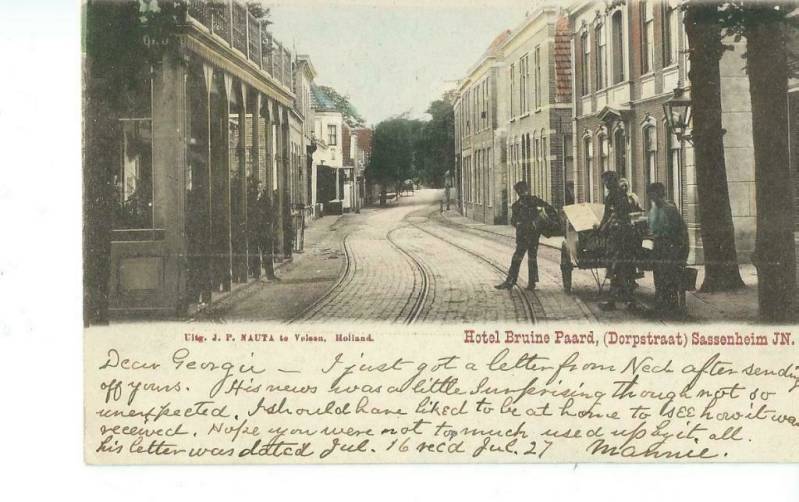 Uitg. J. P. NAUTA te Velsen, Holland.
Hotel Bruine Paard, (Dorpstraat) Sassenheim JN.
Dear Georgie – I just got a letter from Ned after sending
off yours. His news was a little surprising though not so
unexpected. I should have liked to be at home to SEE how it was
received. Hope you were not to much used up by it all.
his letter was dated Jul. 16 recd Jul. 27 Mannie.